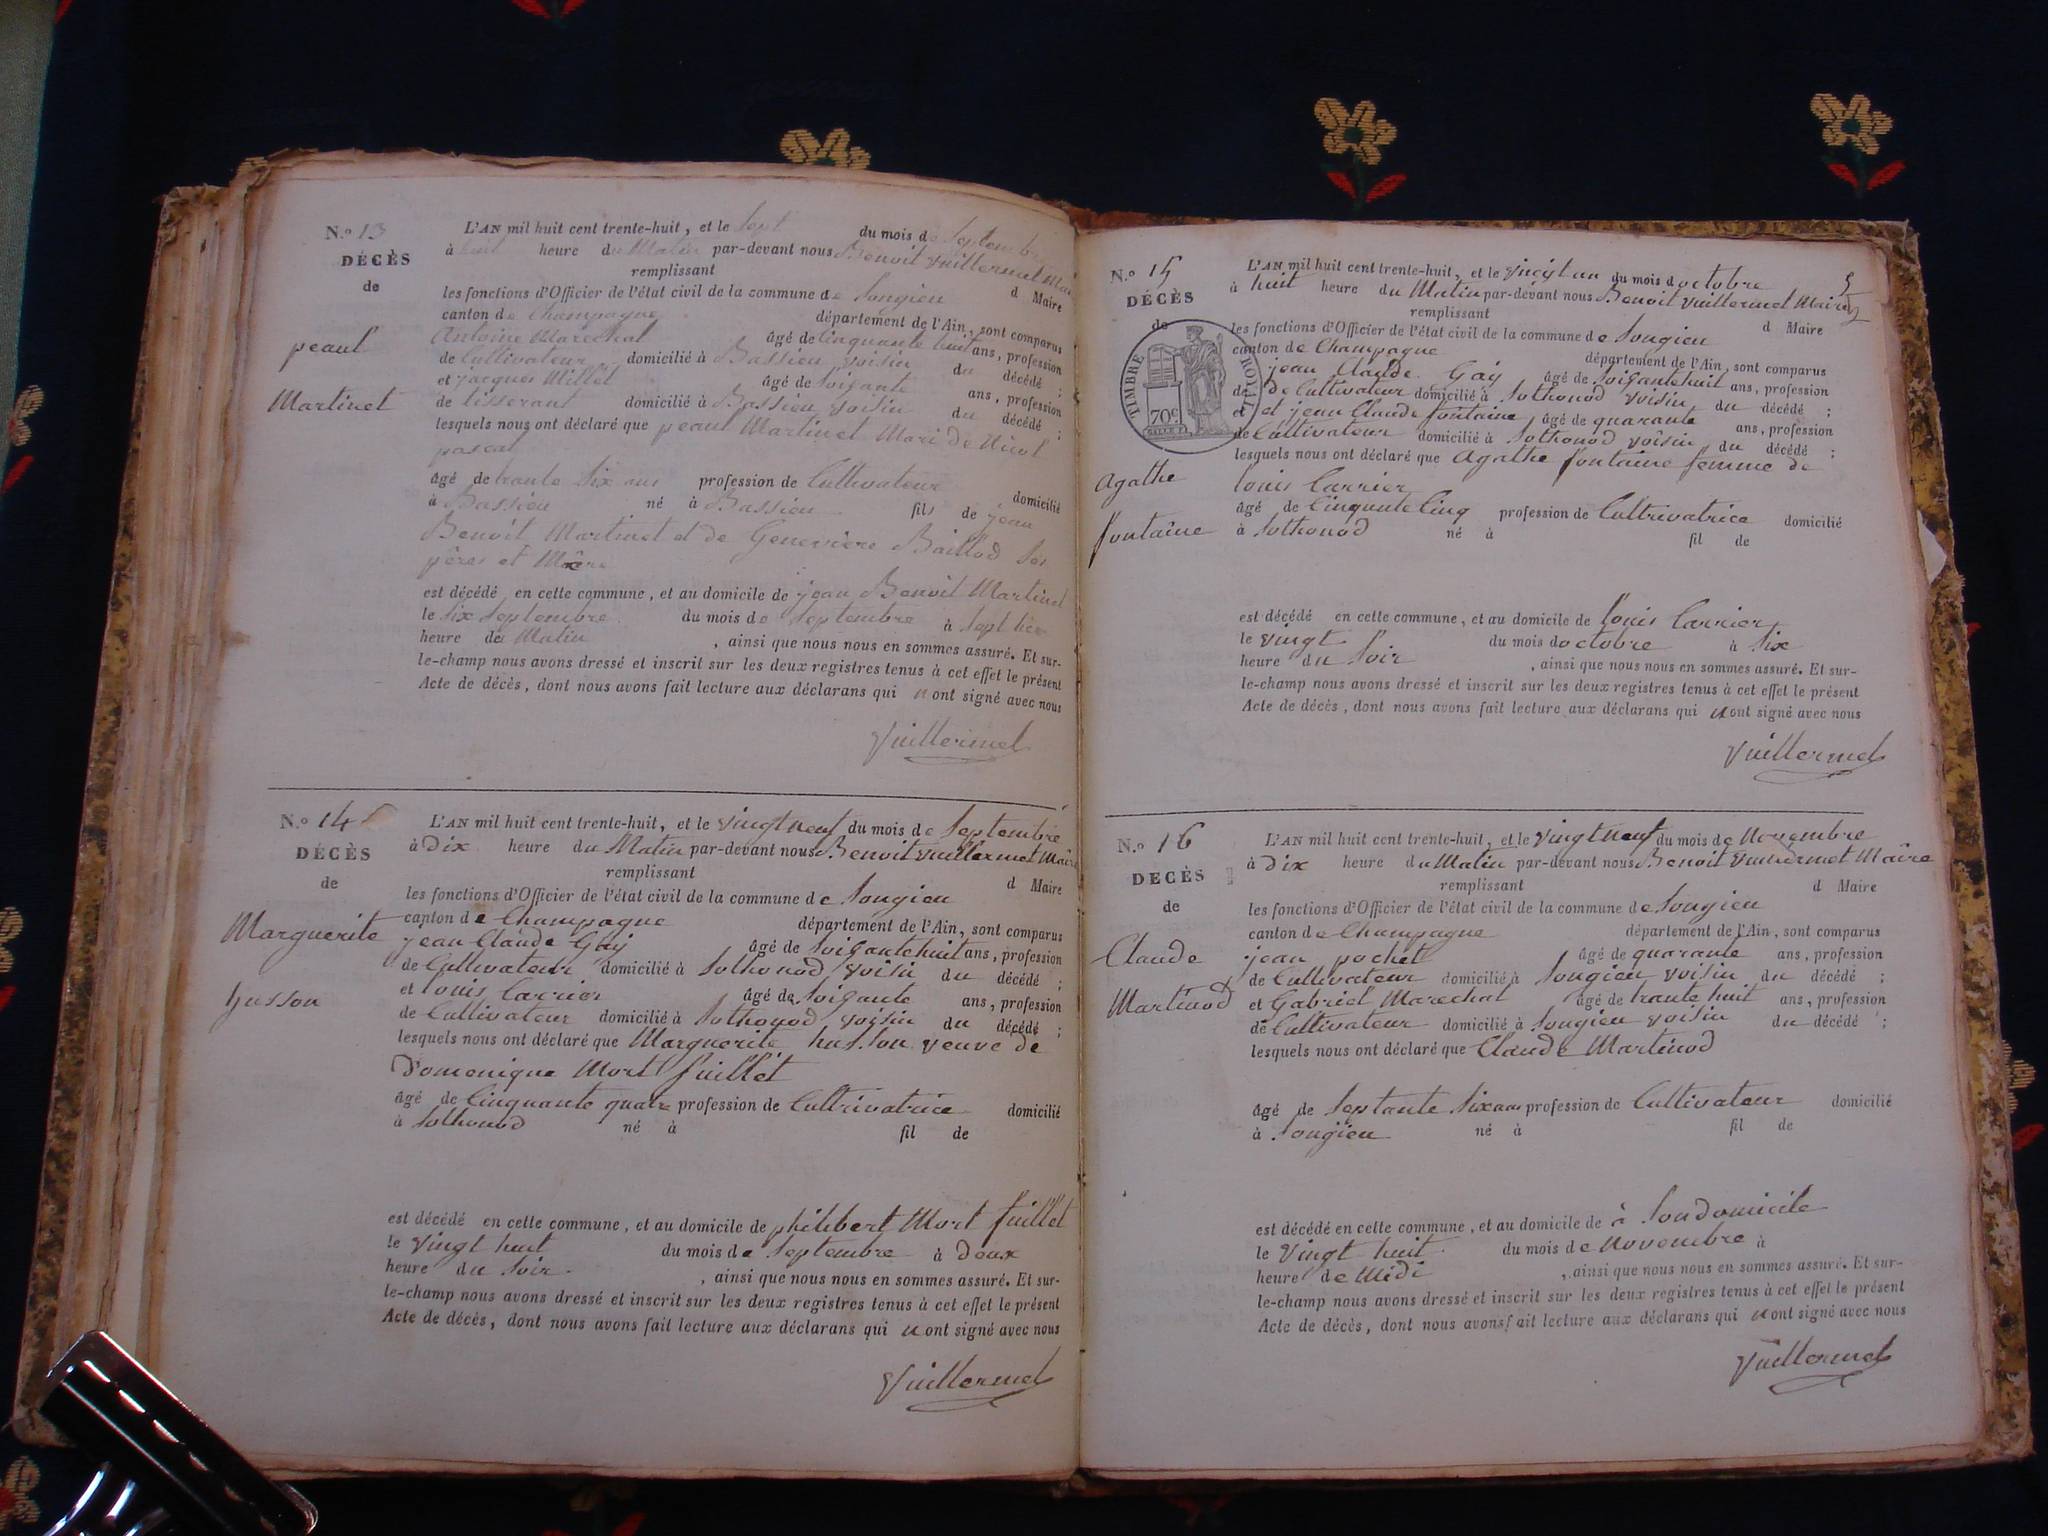 N.º 13
DÉCÈS
de
peaul
Martinet
L'AN mil huit cent trente-huit, et le Sept du mois de Septembre
à huit heure du Matin par-devant nous Benoit Vuillermet
remplissant
les fonctions d'Officier de l'état civil de la commune de Songieu d Maire
canton de Champagne département de l'Ain, sont comparus
Antoine Marechal âgé de Cinquante huit ans, profession
de Cultivateur domicilié à Bassieu voisin du décédé ;
et jacques Millet âgé de Soigante ans, profession
de tisserant domicilié à Bassieu voisin du décédé ;
lesquels nous ont déclaré que peaul Martinet Mari de Nicol
pascal
âgé de trante Six ans profession de Cultivateur domicilié
à Bassieu né à Bassieu fils de jean
Benoit Martinet et de Genevière Baillod Ses
pères et Mère
est décédé en cette commune, et au domicile de jean Benoit Martinet
le Six Septembre du mois de Septembre à Sept
heure de Matin , ainsi que nous nous en sommes assuré. Et sur-
le-champ nous avons dressé et inscrit sur les deux registres tenus à cet effet le présent
Acte de décès, dont nous avons fait lecture aux déclarans qui n ont signé avec nous
Vuillermet
N.º 14
DÉCÈS
de
Marguerite
husson
L'AN mil huit cent trente-huit, et le vingt neuf du mois de Septembre
à Dix heure du Matin par-devant nous Benoit Vuillermet Maire
remplissant
les fonctions d'Officier de l'état civil de la commune de Songieu d Maire
canton de Champagne département de l'Ain, sont comparus
jean Claude Gay âgé de Soigante huit ans, profession
de Cultivateur domicilié à Sothonod voisin du décédé ;
et louis Carrier âgé de Soigante ans, profession
de Cultivateur domicilié à Sothonod voisin du décédé ;
lesquels nous ont déclaré que Marguerite husson veuve de
Domenique Mort fuillet
âgé de Cinquante quatre profession de Cultrivatrice domicilié
à Sothonod né à fil de
est décédé en cette commune, et au domicile de philibert Mort fuillet
le vingt huit du mois de Septembre à Deux
heure du Soir , ainsi que nous nous en sommes assuré. Et sur-
le-champ nous avons dressé et inscrit sur les deux registres tenus à cet effet le présent
Acte de décès, dont nous avons fait lecture aux déclarans qui n ont signé avec nous
Vuillermet
N.º 15
DÉCÈS
de
TIMBRE ROYAL
70c
Agathe
fontaine
L'AN mil huit cent trente-huit, et le vingt un du mois d octobre
à huit heure du Matin par-devant nous Benoit Vuillermet Maire
remplissant
les fonctions d'Officier de l'état civil de la commune de Songieu d Maire
canton de Champagne département de l'Ain, sont comparus
jean Claude Gay âgé de Soigante huit ans, profession
de de Cultivateur domicilié à Sothonod voisin du décédé ;
et et jean Claude fontaine âgé de quarante ans, profession
de Cultivateur domicilié à Sothonod voisin du décédé ;
lesquels nous ont déclaré que Agathe fontaine femme de
louis Carrier
âgé de Cinquante Cinq profession de Cultrivatrice domicilié
à Sothonod né à fil de
est décédé en cette commune, et au domicile de louis Carrier
le vingt du mois d octobre à Six
heure du Soir , ainsi que nous nous en sommes assuré. Et sur-
le-champ nous avons dressé et inscrit sur les deux registres tenus à cet effet le présent
Acte de décès, dont nous avons fait lecture aux déclarans qui n ont signé avec nous
Vuillermet
N.º 16
DÉCÈS
de
Claude
Martinod
L'AN mil huit cent trente-huit, et le vingt neuf du mois de Novembre
à Dix heure du Matin par-devant nous Benoit Vuillermet Maire
remplissant
les fonctions d'Officier de l'état civil de la commune de Songieu d Maire
canton de Champagne département de l'Ain, sont comparus
jean pochet âgé de quarante ans, profession
de Cultivateur domicilié à Songieu voisin du décédé ;
et Gabriel Marechal âgé de trante huit ans, profession
de Cultivateur domicilié à Songieu voisin du décédé ;
lesquels nous ont déclaré que Claude Martinod
âgé de Septante Six ans profession de Cultivateur domicilié
à Songieu né à fil de
est décédé en cette commune, et au domicile de à Son domicile
le vingt huit du mois de Novembre à
heure de Midi , ainsi que nous nous en sommes assuré. Et sur-
le-champ nous avons dressé et inscrit sur les deux registres tenus à cet effet le présent
Acte de décès, dont nous avons fait lecture aux déclarans qui n ont signé avec nous
Vuillermet